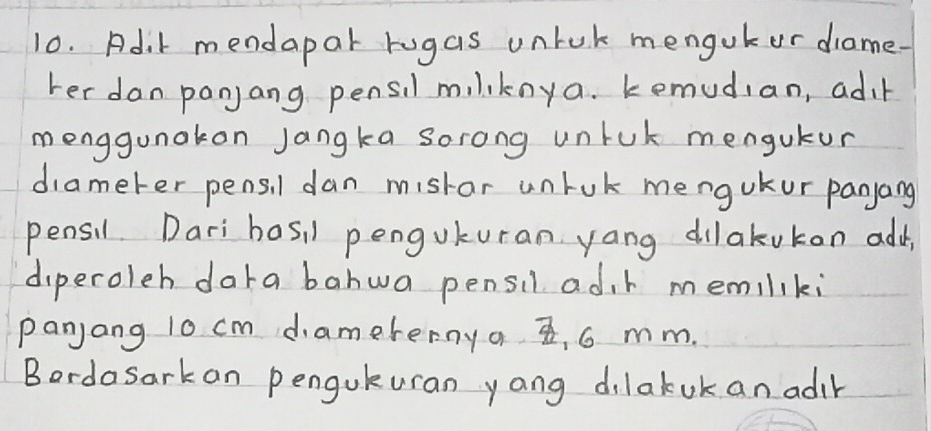 10. Adit mendapat tugas untuk mengukur diame-
ter dan panjang pensil miliknya. kemudian, adit
menggunakan Jangka Sorong untuk mengukur
diameter pensil dan mistar untuk mengukur panjang
pensil. Dari hasil pengukuran yang dilakukan adit,
diperoleh data bahwa pensil adit memiliki
panjang 10 cm diameternya 7,6 mm.
Berdasarkan pengukuran yang dilakukan adit